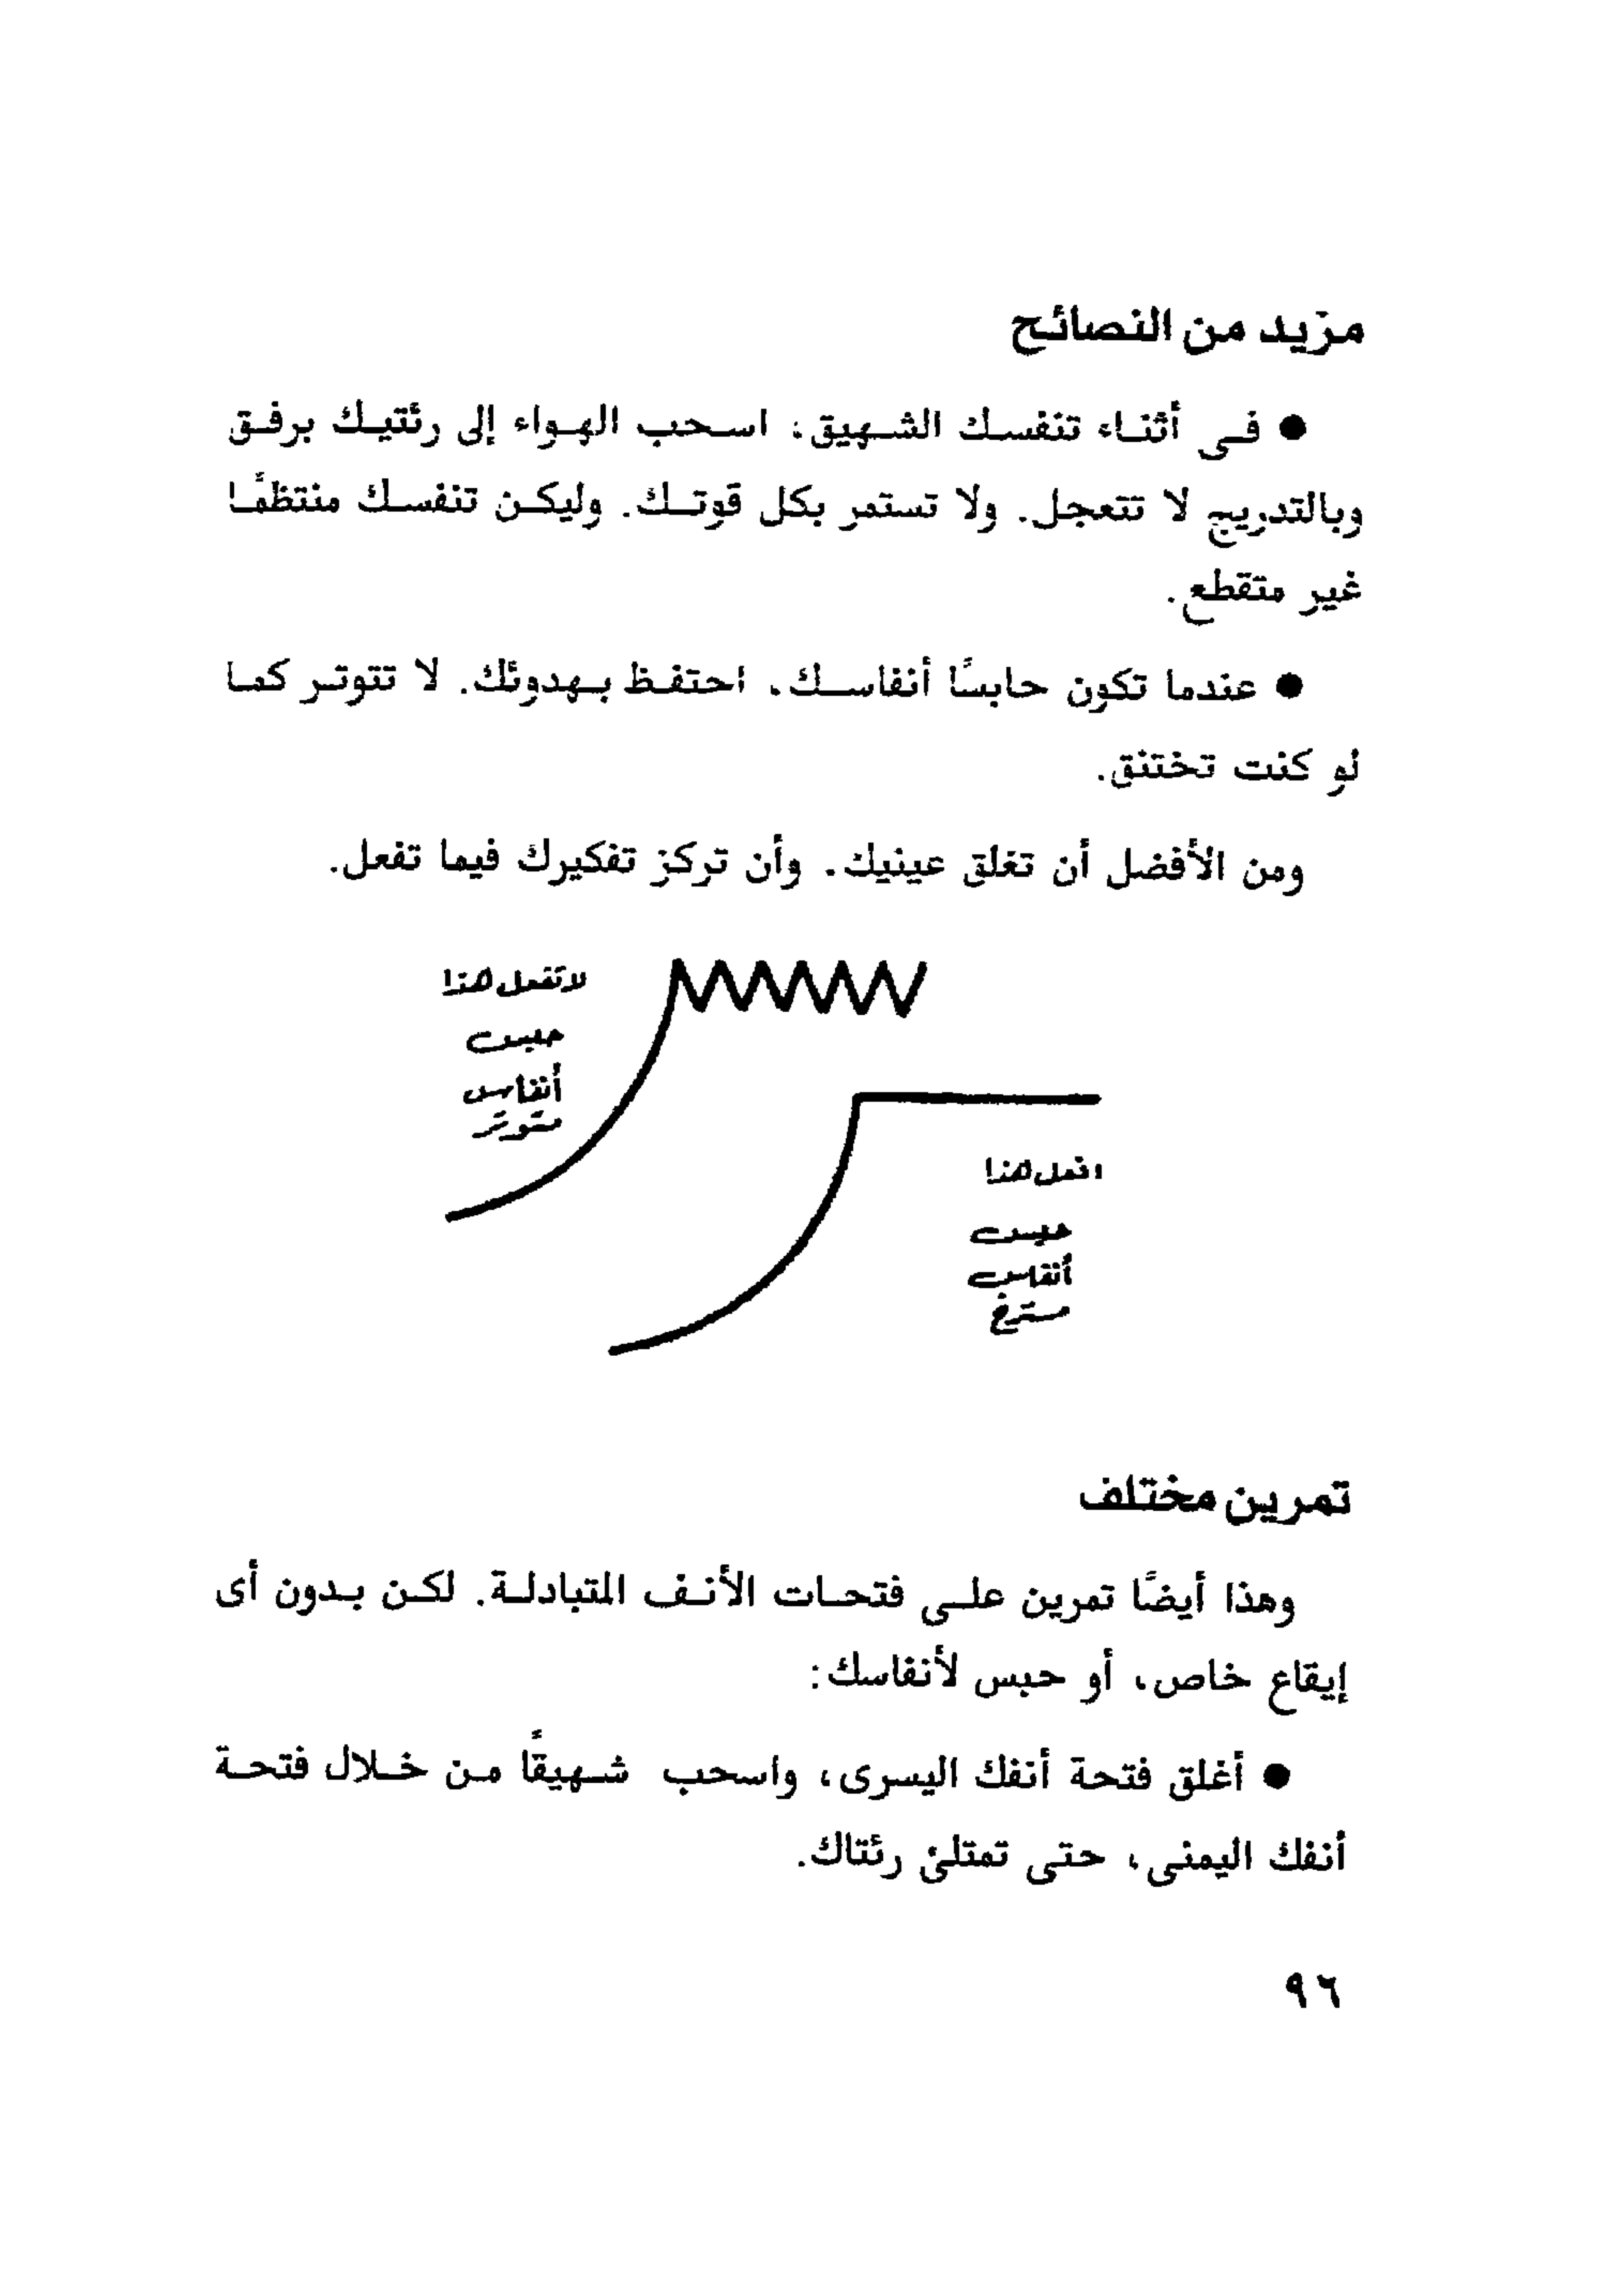 مزيد من النصائح
● فى أثناء تنفسك الشهيق: اسحب الهواء إلى رئتيك برفق
وبالتدريج لا تتعجل. ولا تستمر بكل قوتك. وليكن تنفسك منتظمًا
غير متقطع.
● عندما تكون حابسًا أنفاسك، احتفظ بهدوئك. لا تتوتر كما
لو كنت تختنق.
ومن الأفضل أن تغلق عينيك. وأن تركز تفكيرك فيما تفعل.
لا تفعل هذا
حبس
أنفاس
متوتر
افعل هذا
حبس
أنفاس
مسترخ
تمرين مختلف
وهذا أيضًا تمرين على فتحات الأنف المتبادلة. لكن بدون أى
إيقاع خاص، أو حبس لأنفاسك:
● أغلق فتحة أنفك اليسرى، واسحب شهيقًا من خلال فتحة
أنفك اليمنى، حتى تمتلئ رئتاك.
٩٦